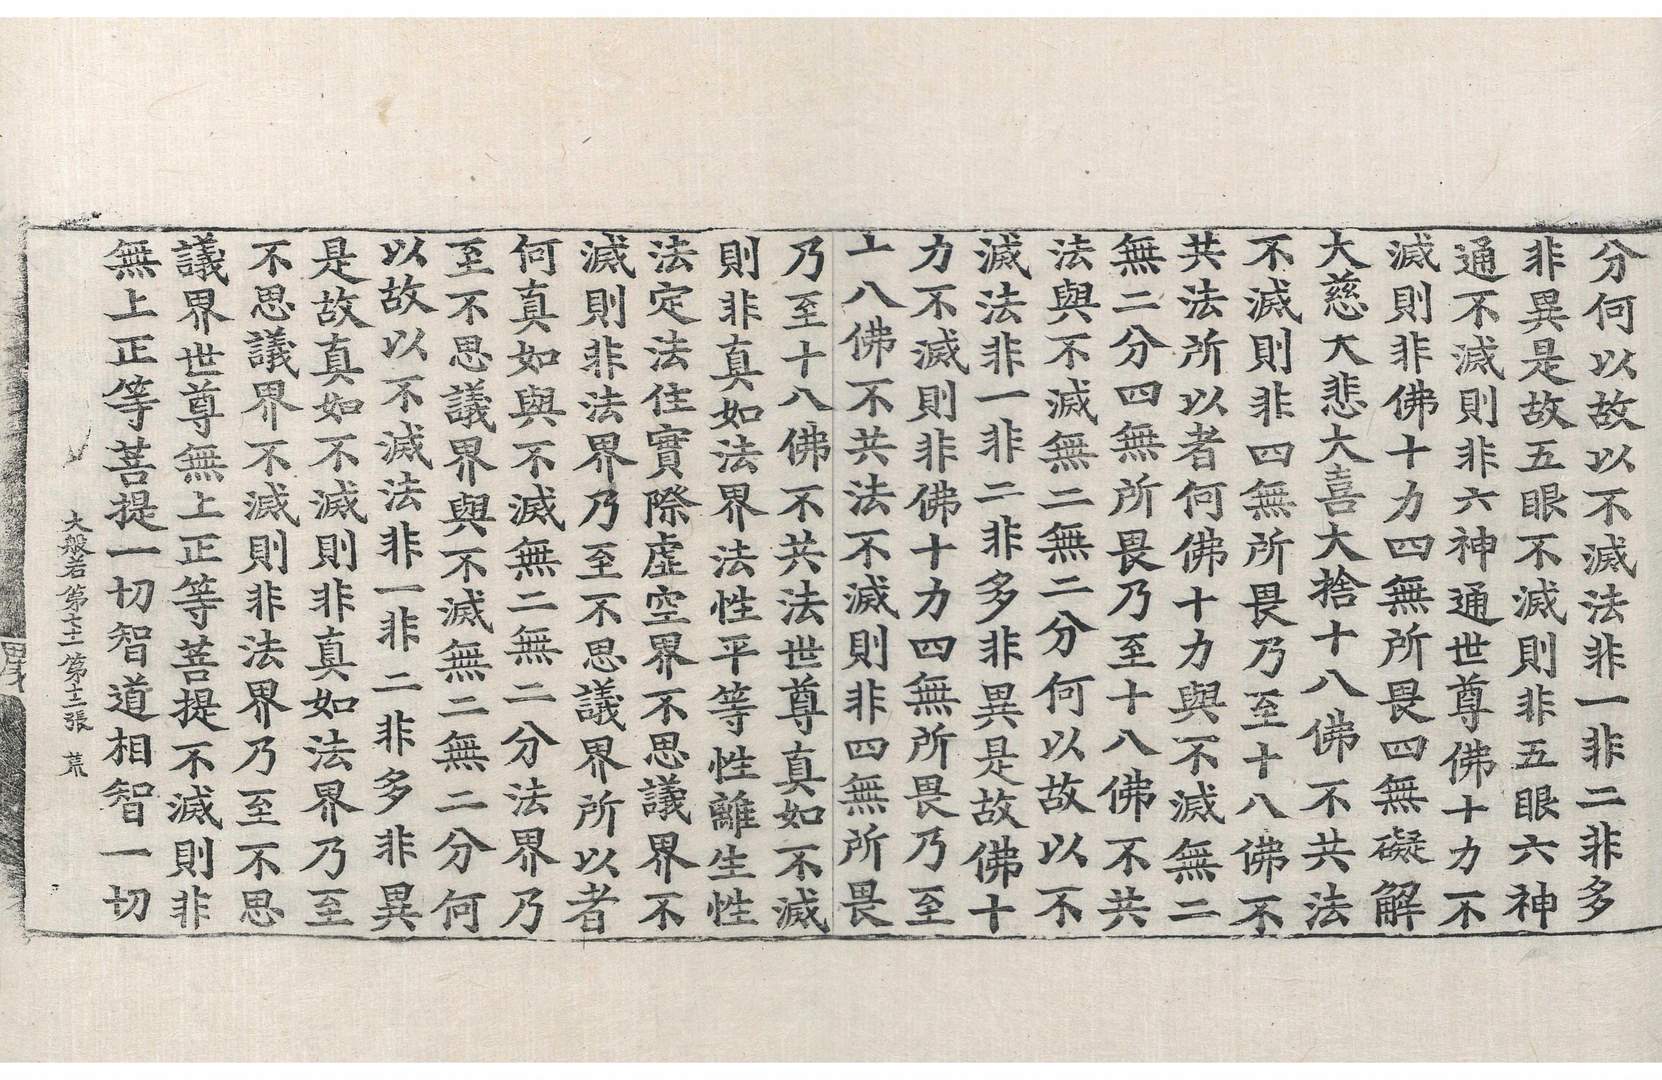 分何以故以不滅法非一非二非多
非異是故五眼不滅則非五眼六神
通不滅則非六神通世尊佛十力不
滅則非佛十力四無所畏四無礙解
大慈大悲大喜大捨十八佛不共法
不滅則非四無所畏乃至十八佛不
共法所以者何佛十力與不滅無二
無二分四無所畏乃至十八佛不共
法與不滅無二無二分何以故以不
滅法非一非二非多非異是故佛十
力不滅則非佛十力四無所畏乃至
十八佛不共法不滅則非四無所畏
乃至十八佛不共法世尊真如不滅
則非真如法界法性平等性離生性
法定法住實際虛空界不思議界不
滅則非法界乃至不思議界所以者
何真如與不滅無二無二分法界乃
至不思議界與不滅無二無二分何
以故以不滅法非一非二非多非異
是故真如不滅則非真如法界乃至
不思議界不滅則非法界乃至不思
議界世尊無上正等菩提不滅則非
無上正等菩提一切智道相智一切
大般若第七十二 第十三張 荒